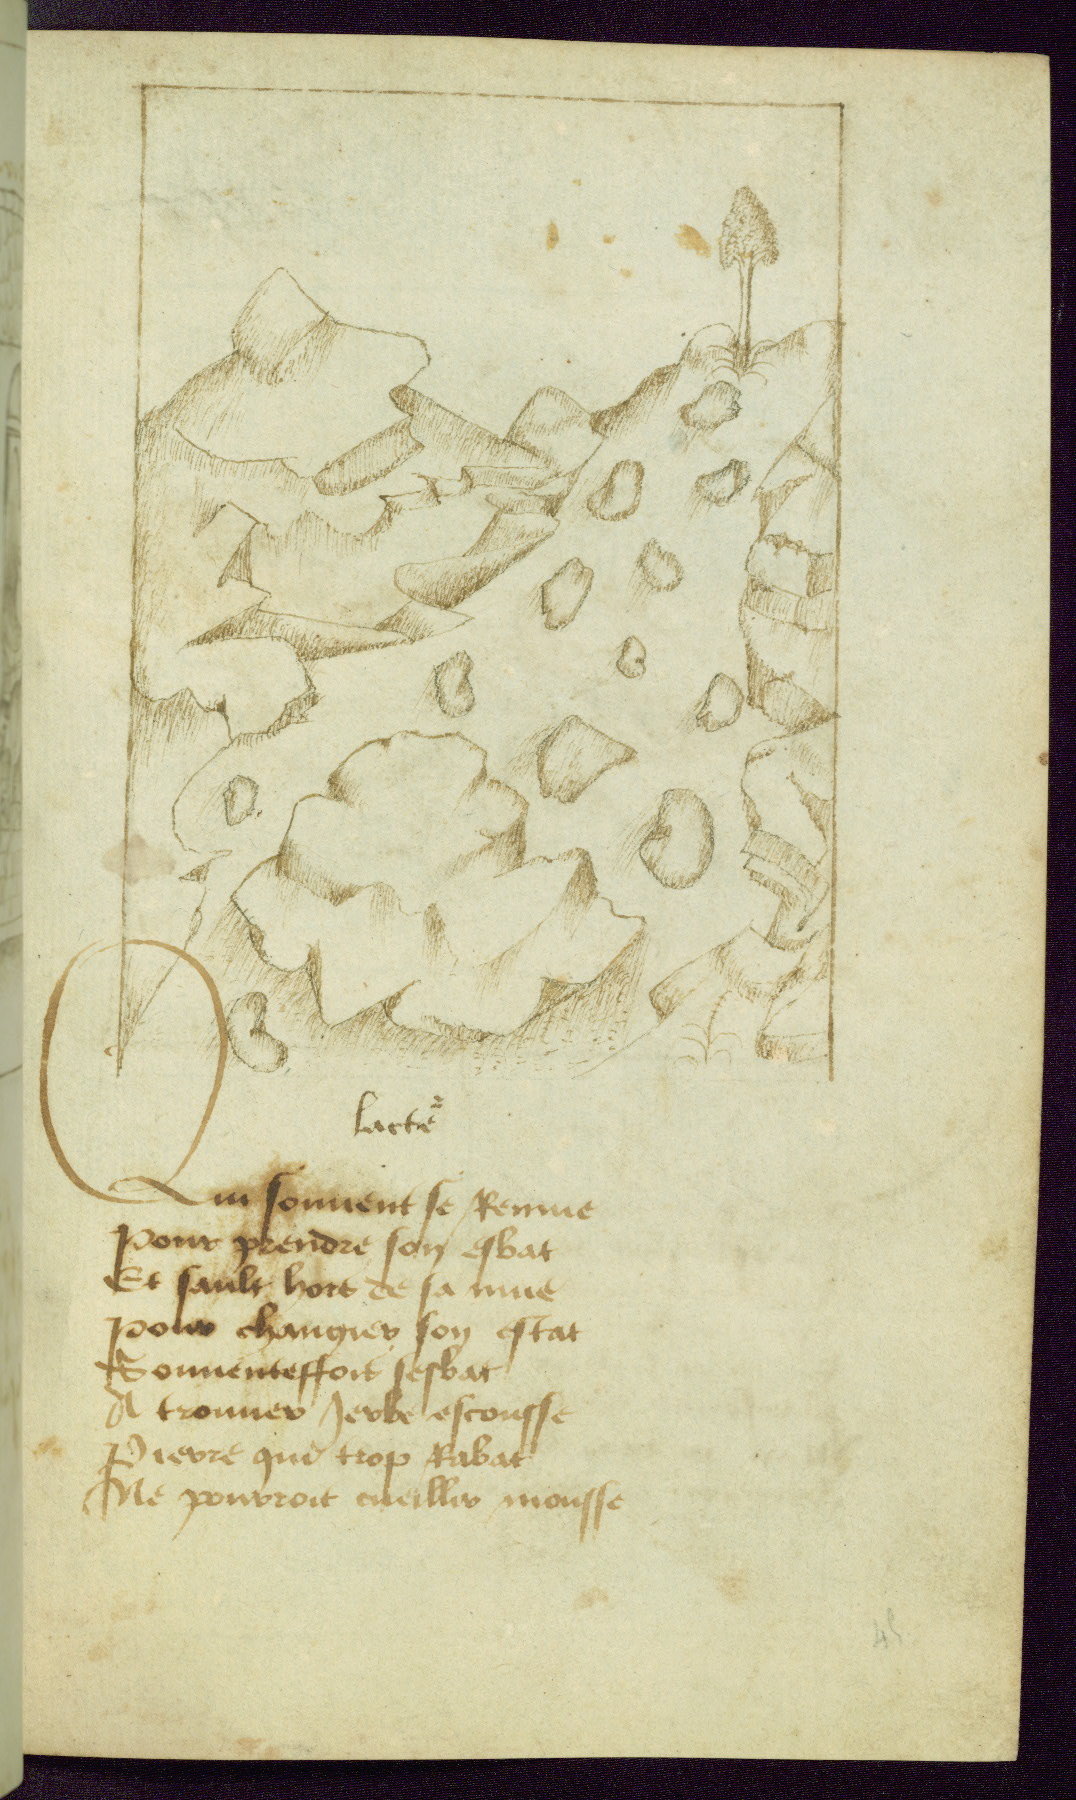 lacteʳ
Qui souuent se Remue
Pour prendre son esbat
Et sault hors de sa mue
Pour changier son estat
Souuenteffoit sesbat
A trouuer Jerbe escousse
Pierre qui trop Rabat
Ne pourroit cueillir mousse
45